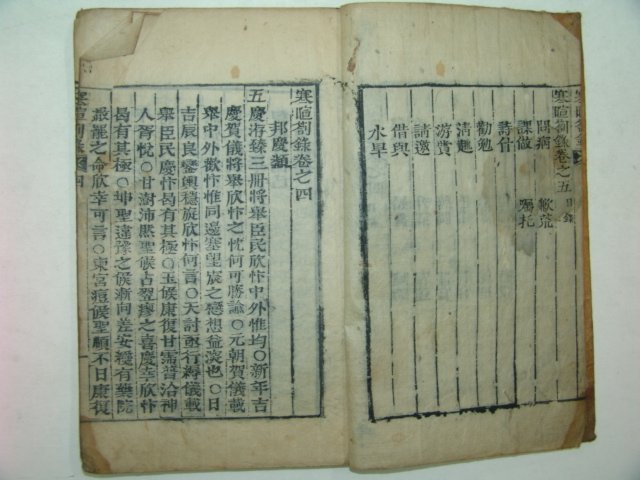 寒暄箚錄
寒暄箚錄卷之五目錄
問病 歉荒
課做 囑托
詩什
勸勉
淸趣
游賞
請邀
借與
水旱
寒暄箚錄卷之四
邦慶類
五慶洊臻三冊將舉臣民欣忭中外惟均○新年吉
慶賀儀將舉欣忭之忱何可勝諭○元朝賀儀載
舉中外歡忭惟同邊塞望宸之戀想益深也○日
吉辰良鑾輿穩旋欣忭何言○天討行縟儀載
舉臣民慶忭曷有其極○玉候康復甘霈普洽神
人胥悅○甘澍沛然聖候占翌瘳之喜慶幸欣忭
曷有其極○坤聖違豫之候漸向差安纔有藥院
罷之命欣幸可言○東宮痘候聖不日康復
寒暄箚錄 四